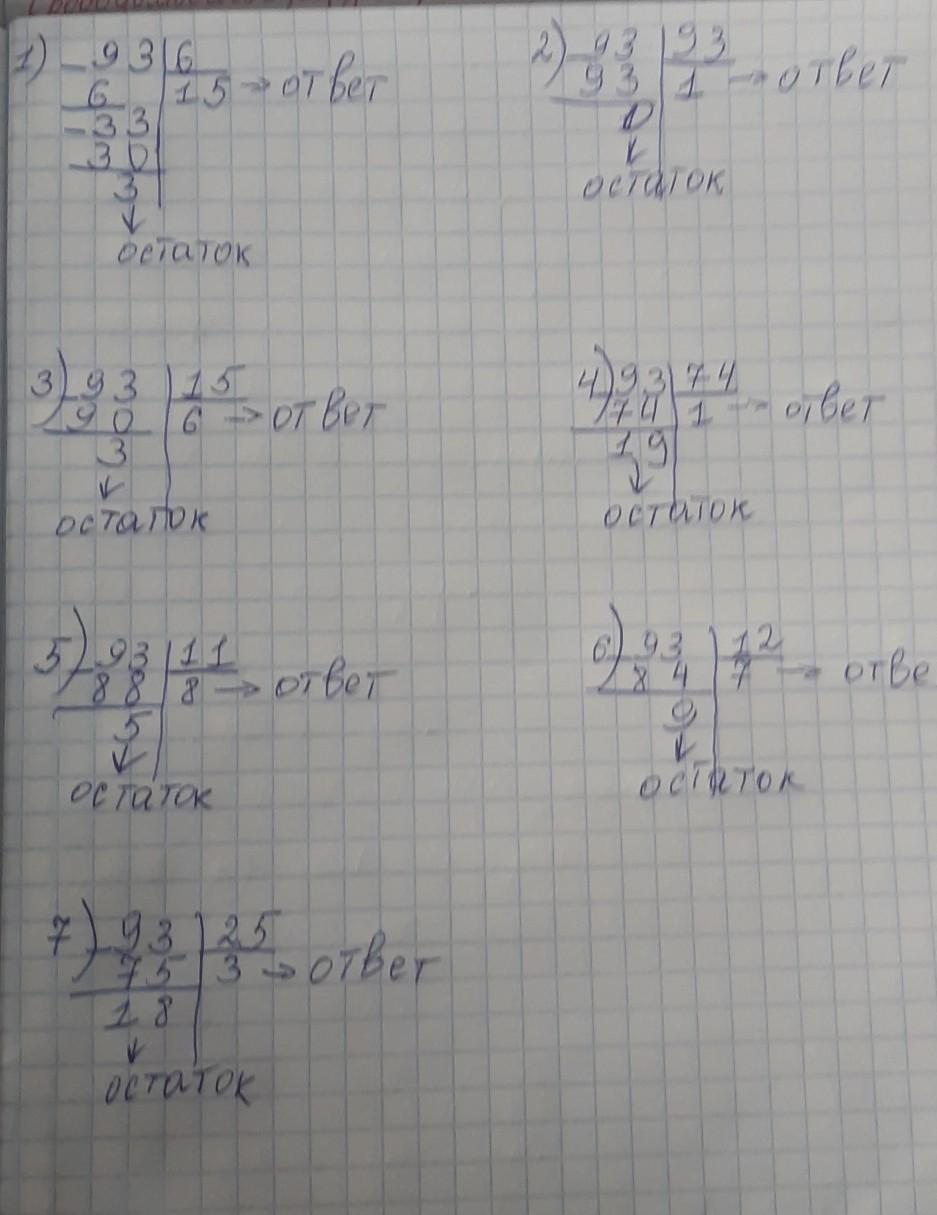 1) -93|6
6 15 → ответ
-33
30
3
остаток
2) -93|93
93 1 → ответ
0
остаток
3) -93|15
90 6 → ответ
3
остаток
4) -93|74
74 1 → ответ
19
остаток
5) -93|11
88 8 → ответ
5
остаток
6) -93|12
84 7 → отве
9
остаток
7) -93|25
75 3 → ответ
18
остаток